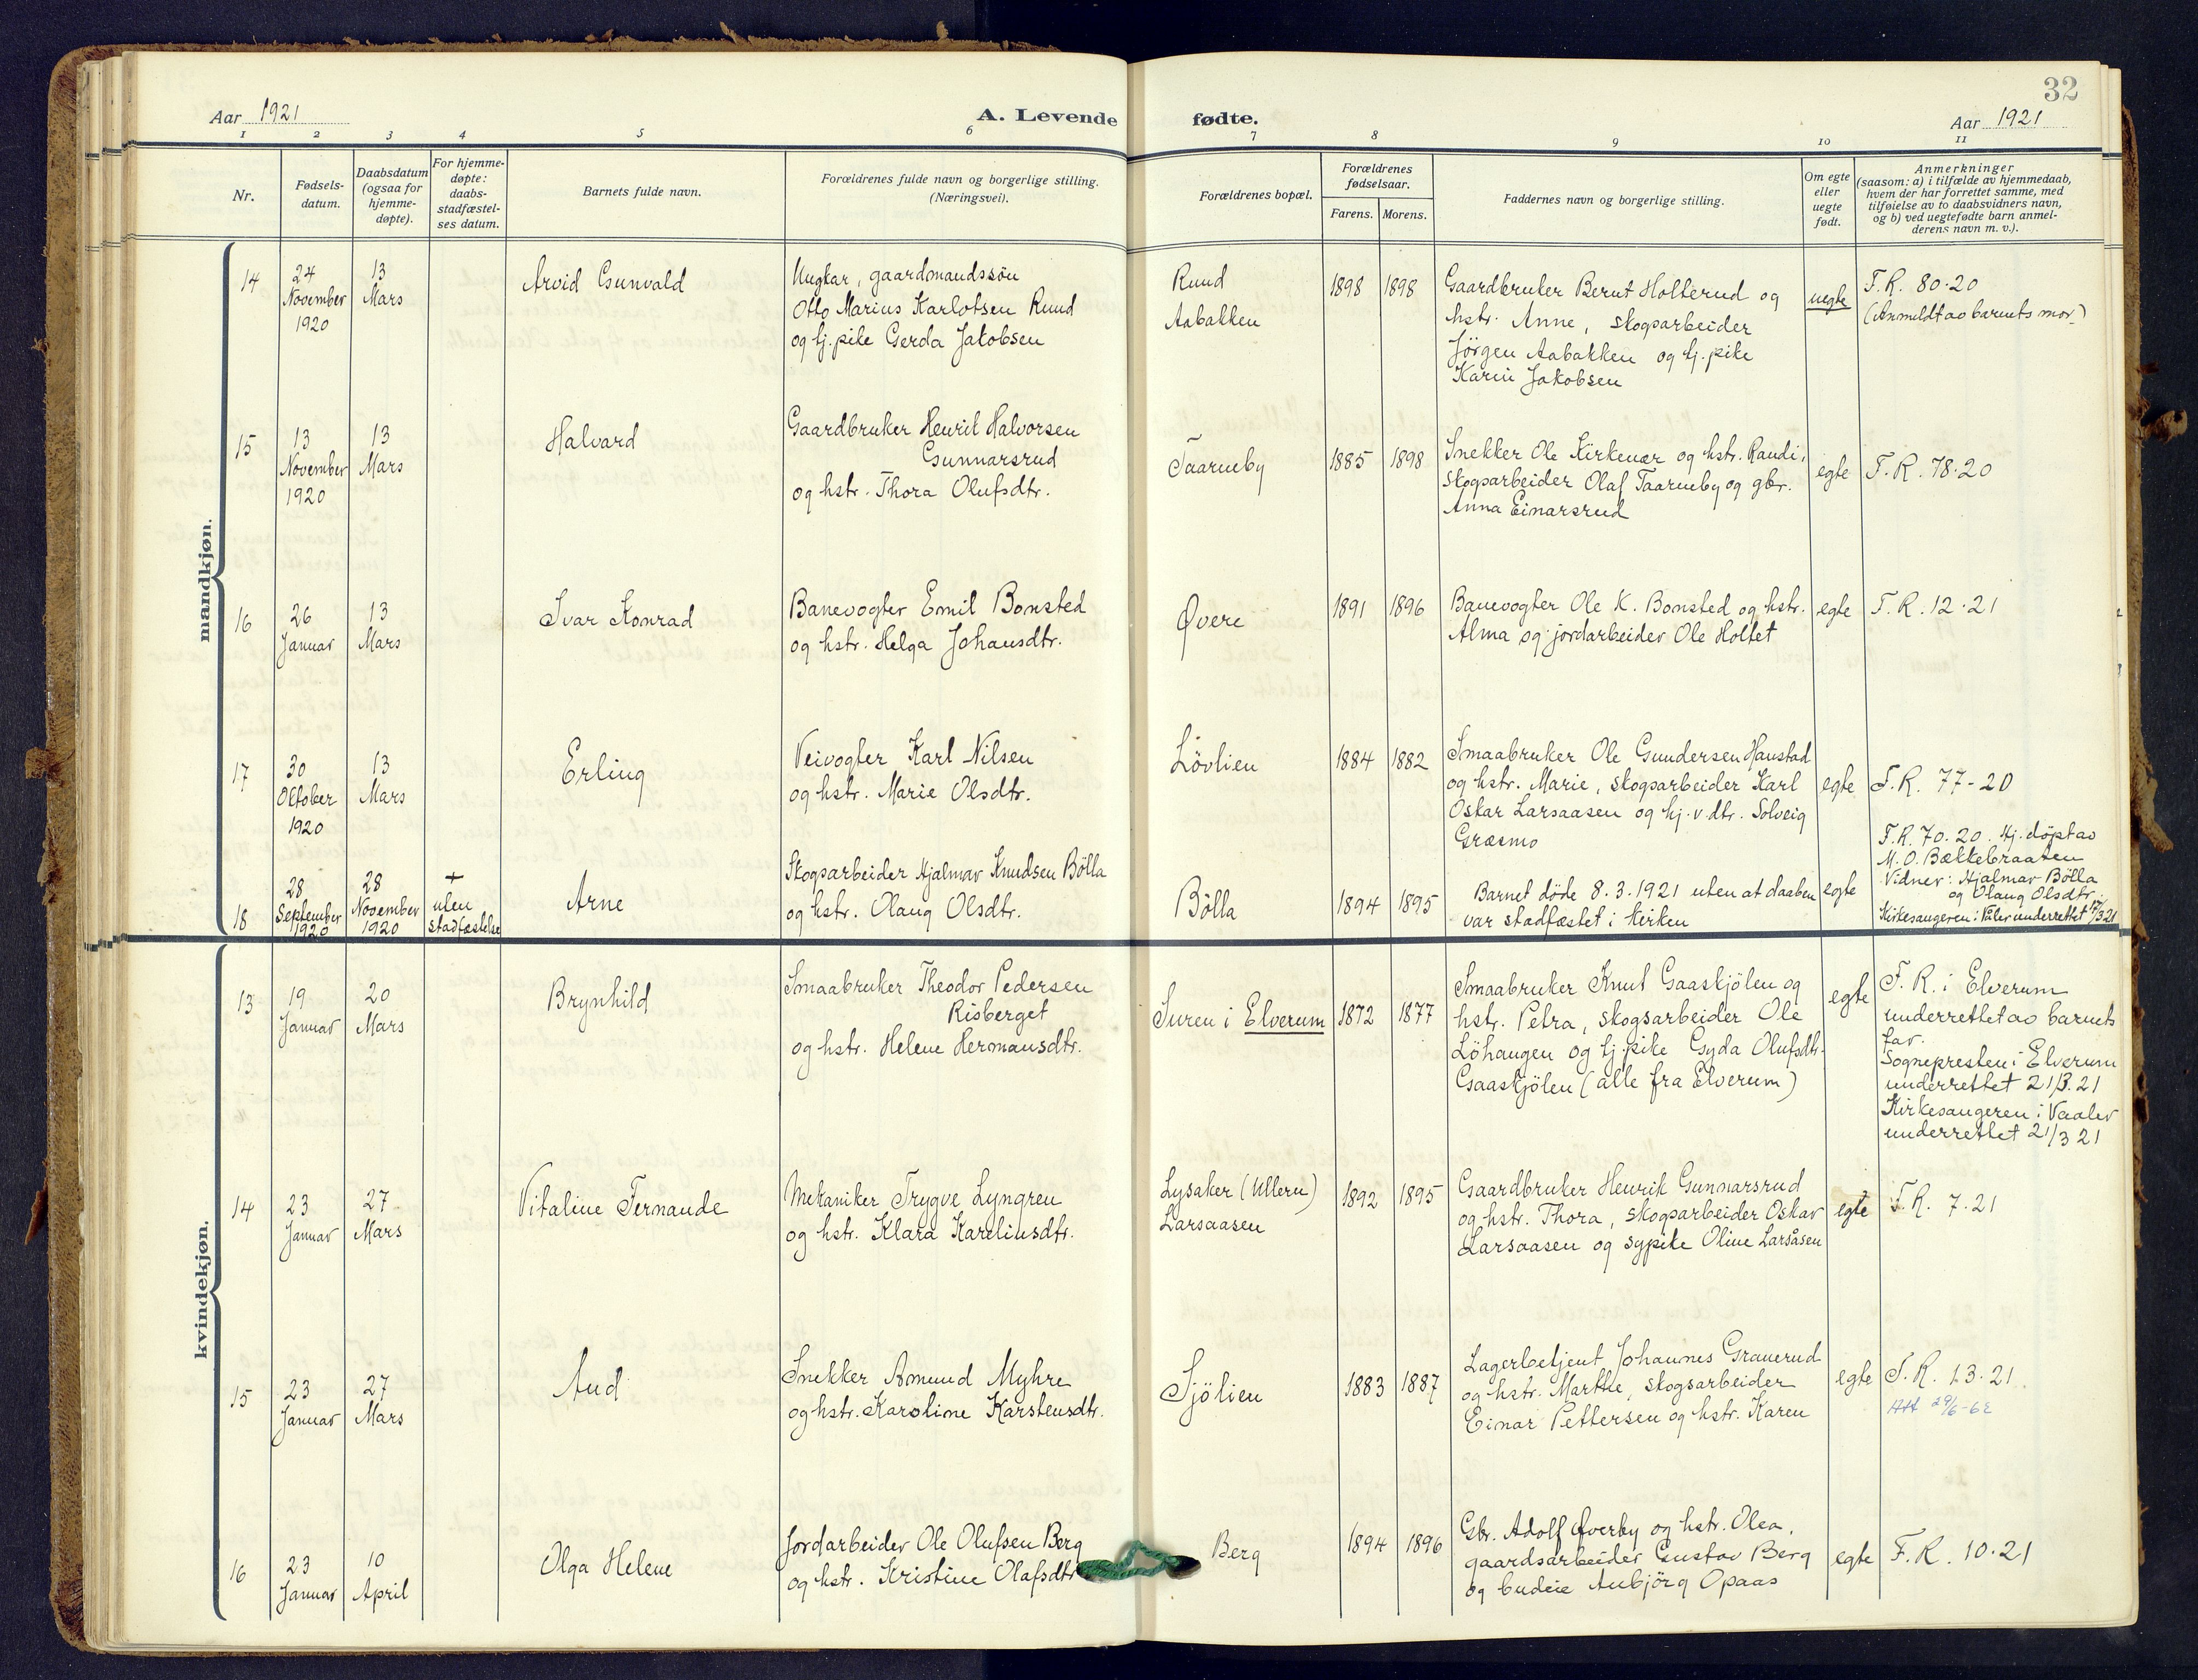 32
Aar 1921
A. Levende
fødte.
Aar 1921
1 2 3 4 5 6 7 8 9 10 11
Nr.
Fødsels-
datum.
Daabsdatum
(ogsaa for
hjemme-
døpte).
For hjemme-
døpte:
daabs-
stadfæstel-
ses datum.
Barnets fulde navn.
Forældrenes fulde navn og borgerlige stilling.
(Næringsvei).
Forældrenes bopæl.
Forældrenes
fødselsaar.
Farens. Morens.
Faddernes navn og borgerlige stilling.
Om egte
eller
uegte
født.
Anmerkninger
(saasom: a) i tilfælde av hjemmedaab,
hvem der har forrettet samme, med
tilføielse av to daabsvidners navn,
og b) ved uegtefødte barn anmel-
derens navn m. v.).
mandkjøn.
14
24
November
1920
13
Mars
Arvid Gunvald
Ungkar, gaardmandssøn
Otto Marius Karlotsen Ruud
og tj. pike Gerda Jakobsen
Ruud
Aabakken
1898
1898
Gaardbruker Bernt Holterud og
hstr. Anne, skogsarbeider
Jørgen Aabakken og tj. pike
Karin Jakobsen
uegte
F. R. 80.20
(Anmeldt av barnets mor.)
15
13
November
1920
13
Mars
Halvard
Gaardbruker Henrik Halvorsen
Gunnarsrud
og hstr. Thora Olufsdtr.
Taarneby
1885
1898
Snekker Ole Kirkenær og hstr. Randi,
skogsarbeider Olaf Taarneby og gbr.
Anna Einarsrud
egte
F. R. 78.20
16
26
Januar
13
Mars
Ivar Konrad
Banevogter Emil Bonsted
og hstr. Helga Johansdtr.
Øvere
1891
1896
Banevogter Ole K. Bonsted og hstr.
Alma og jordarbeider Ole Holtet
egte
F. R. 12.21
17
30
Oktober
1920
13
Mars
Erling
Veivogter Karl Nilsen
og hstr. Marie Olsdtr.
Lövlien
1884
1882
Smaabruker Ole Gundersen Haustad
og hstr. Marie, skogsarbeider Karl
Oskar Larsaasen og hj. v. dtr. Solveig
Græsmo
egte
F. R. 77-20
18
28
September
1920
28
November
1920
+
uten
stadfæstelse
Arne
Skogsarbeider Hjalmar Knudsen Bölla
og hstr. Olaug Olsdtr.
Bölla
1894
1895
Barnet døde 8.3.1921 uten at daaben
var stadfæstet i kirken
egte
F. R. 70.20. Hj. döpt av
M. O. Bækkebraaten
Vidner: Hjalmar Bölla
og Olaug Olsdtr.
Kirkesangeren i Våler underrettet 17/3 21
kvindekjøn.
13
19
Januar
20
Mars
Brynhild
Smaabruker Theodor Pedersen
Risberget
og hstr. Helene Hermansdtr.
Suren i Elverum
1872
1877
Smaabruker Knut Gaaskjölen og
hstr. Petra, skogsarbeider Ole
Löhaugen og tj. pike Gyda Olufsdtr.
Gaaskjölen (alle fra Elverum)
egte
F. R. i Elverum
underrettet av barnets
far.
Sognepresten i Elverum
underrettet 21/3.21
Kirkesangeren i Vaaler
underrettet 21/3 21
14
23
Januar
27
Mars
Vitaline Fernande
Mekaniker Trygve Lyngren
og hstr. Klara Karelinsdtr.
Lysaker (Ullern)
Larsaasen
1892
1895
Gaardbruker Henrik Gunnarsrud
og hstr. Thora, skogsarbeider Oskar
Larsaasen og sypike Oline Larsåsen
egte
F. R. 7.21
15
23
Januar
27
Mars
Aud
Snekker Amund Myhre
og hstr. Karoline Karstensdtr.
Sjölien
1883
1887
Lagerbetjent Johannes Granerud
og hstr. Marthe, skogsarbeider
Einar Pettersen og hstr. Karen
egte
F. R. 13.21
Att 29/6-62
16
23
Januar
10
April
Olga Helene
Jordarbeider Ole Olufsen Berg
og hstr. Kristine Olafsdtr
Berg
1894
1896
Gbr. Adolf Øverby og hstr. Olea,
gaardsarbeider Gustav Berg
og budeie Anbjörg Opaas
egte
F. R. 10.21